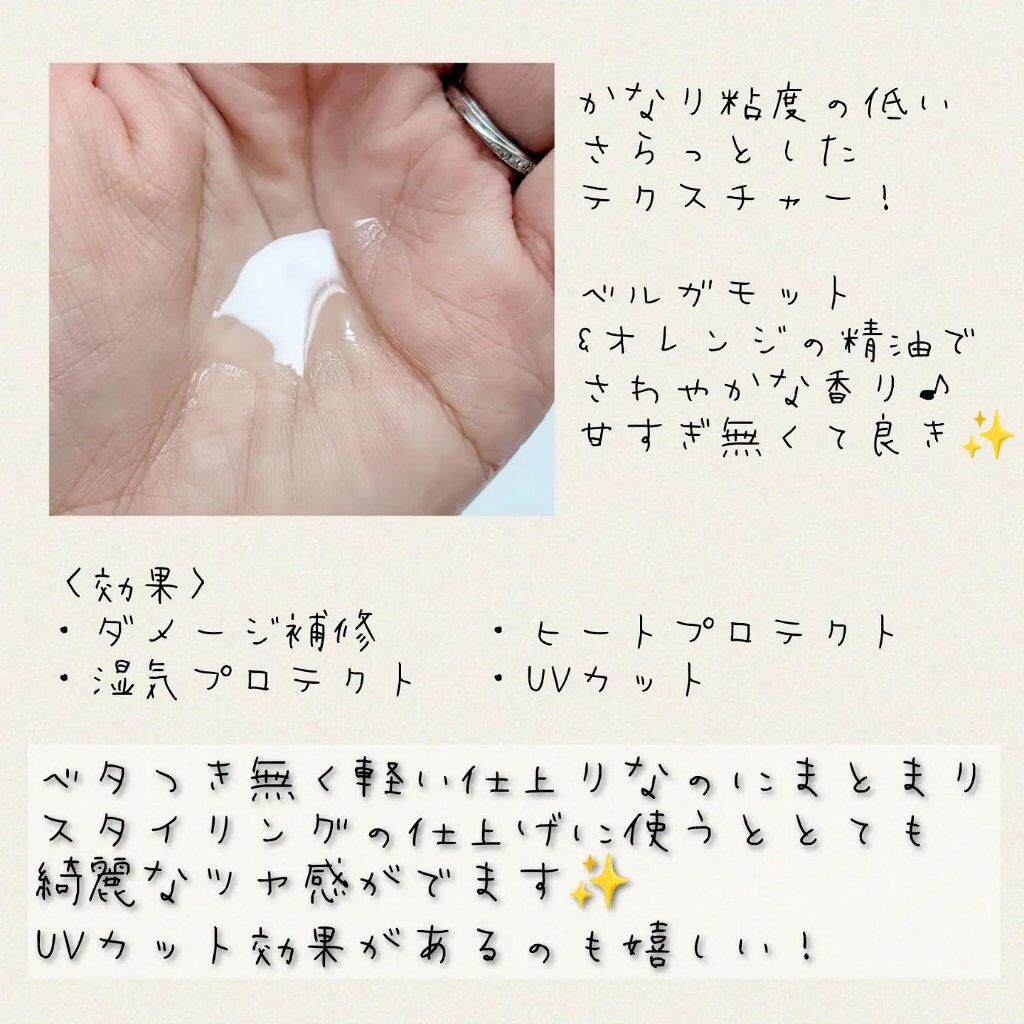 かなり粘度の低い
さらっとした
テクスチャー!
ベルガモット
&オレンジの精油で
さわやかな香り♪
甘すぎ無くて良き✨
〈効果〉
・ダメージ補修
・ヒートプロテクト
・湿気プロテクト
・UVカット
ベタつき無く軽い仕上りなのにまとまり
スタイリングの仕上げに使うととても
綺麗なツヤ感がでます✨
UVカット効果があるのも嬉しい!